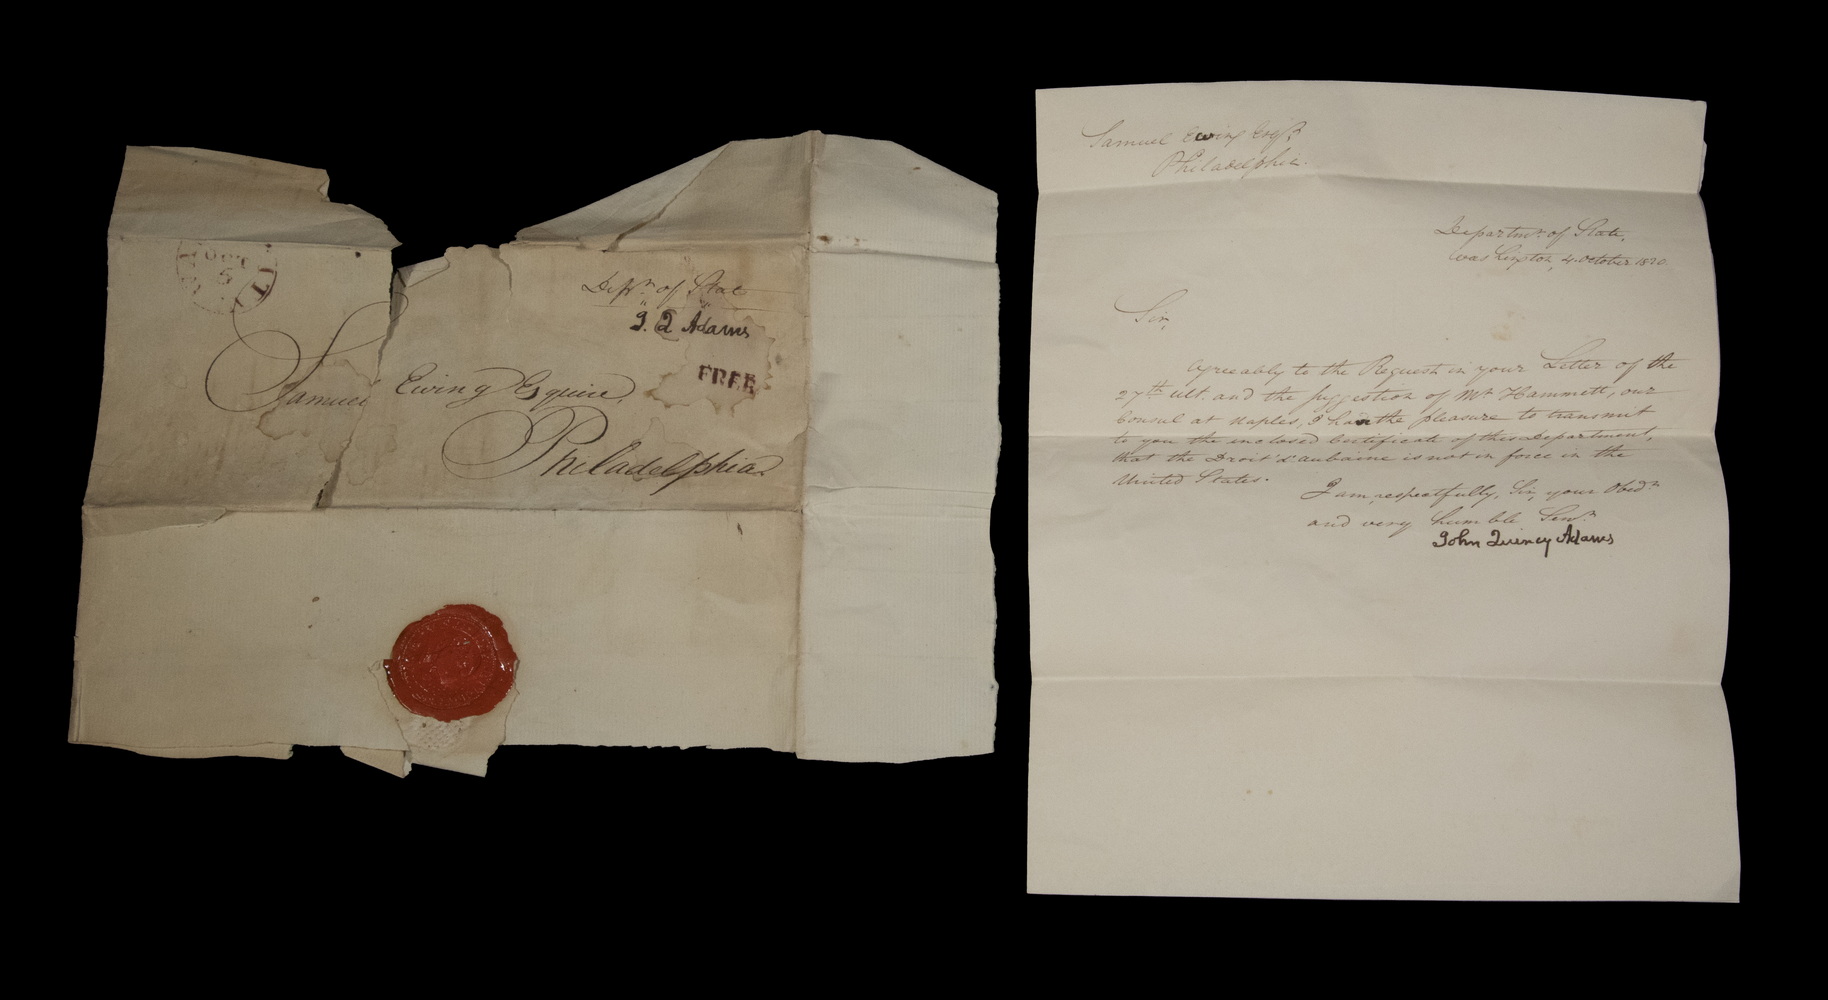 OCT
5
Dept. of State
J. Q. Adams
FREE
Samuel Ewing Esquire
Philadelphia.
Samuel Ewing Esqr.
Philadelphia.
Departmt. of State,
Washington, 4. October 1820.
Sir,
Agreeably to the Request in your Letter of the
27th. ult. and the suggestion of Mr. Hammett, our
Consul at Naples, I have the pleasure to transmit
to you the inclosed Certificate of this Department,
that the Droit d'aubaine is not in force in the
United States.
I am, respectfully, Sir, your Obedt.
and very humble Servt.
John Quincy Adams